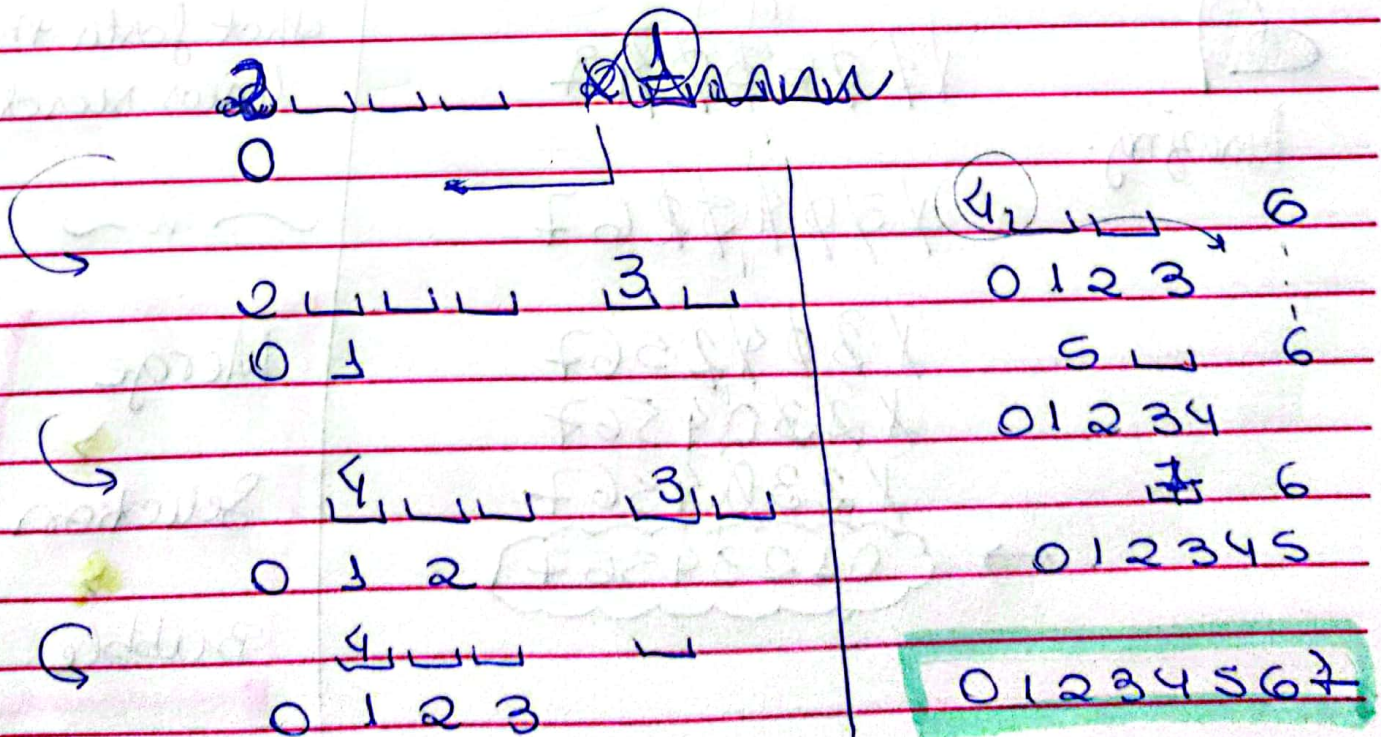 2 1
0
2 3
0 1
4 3
0 1 2
4
0 1 2 3
4 6
0 1 2 3
5 6
0 1 2 3 4
7 6
0 1 2 3 4 5
0 1 2 3 4 5 6 7